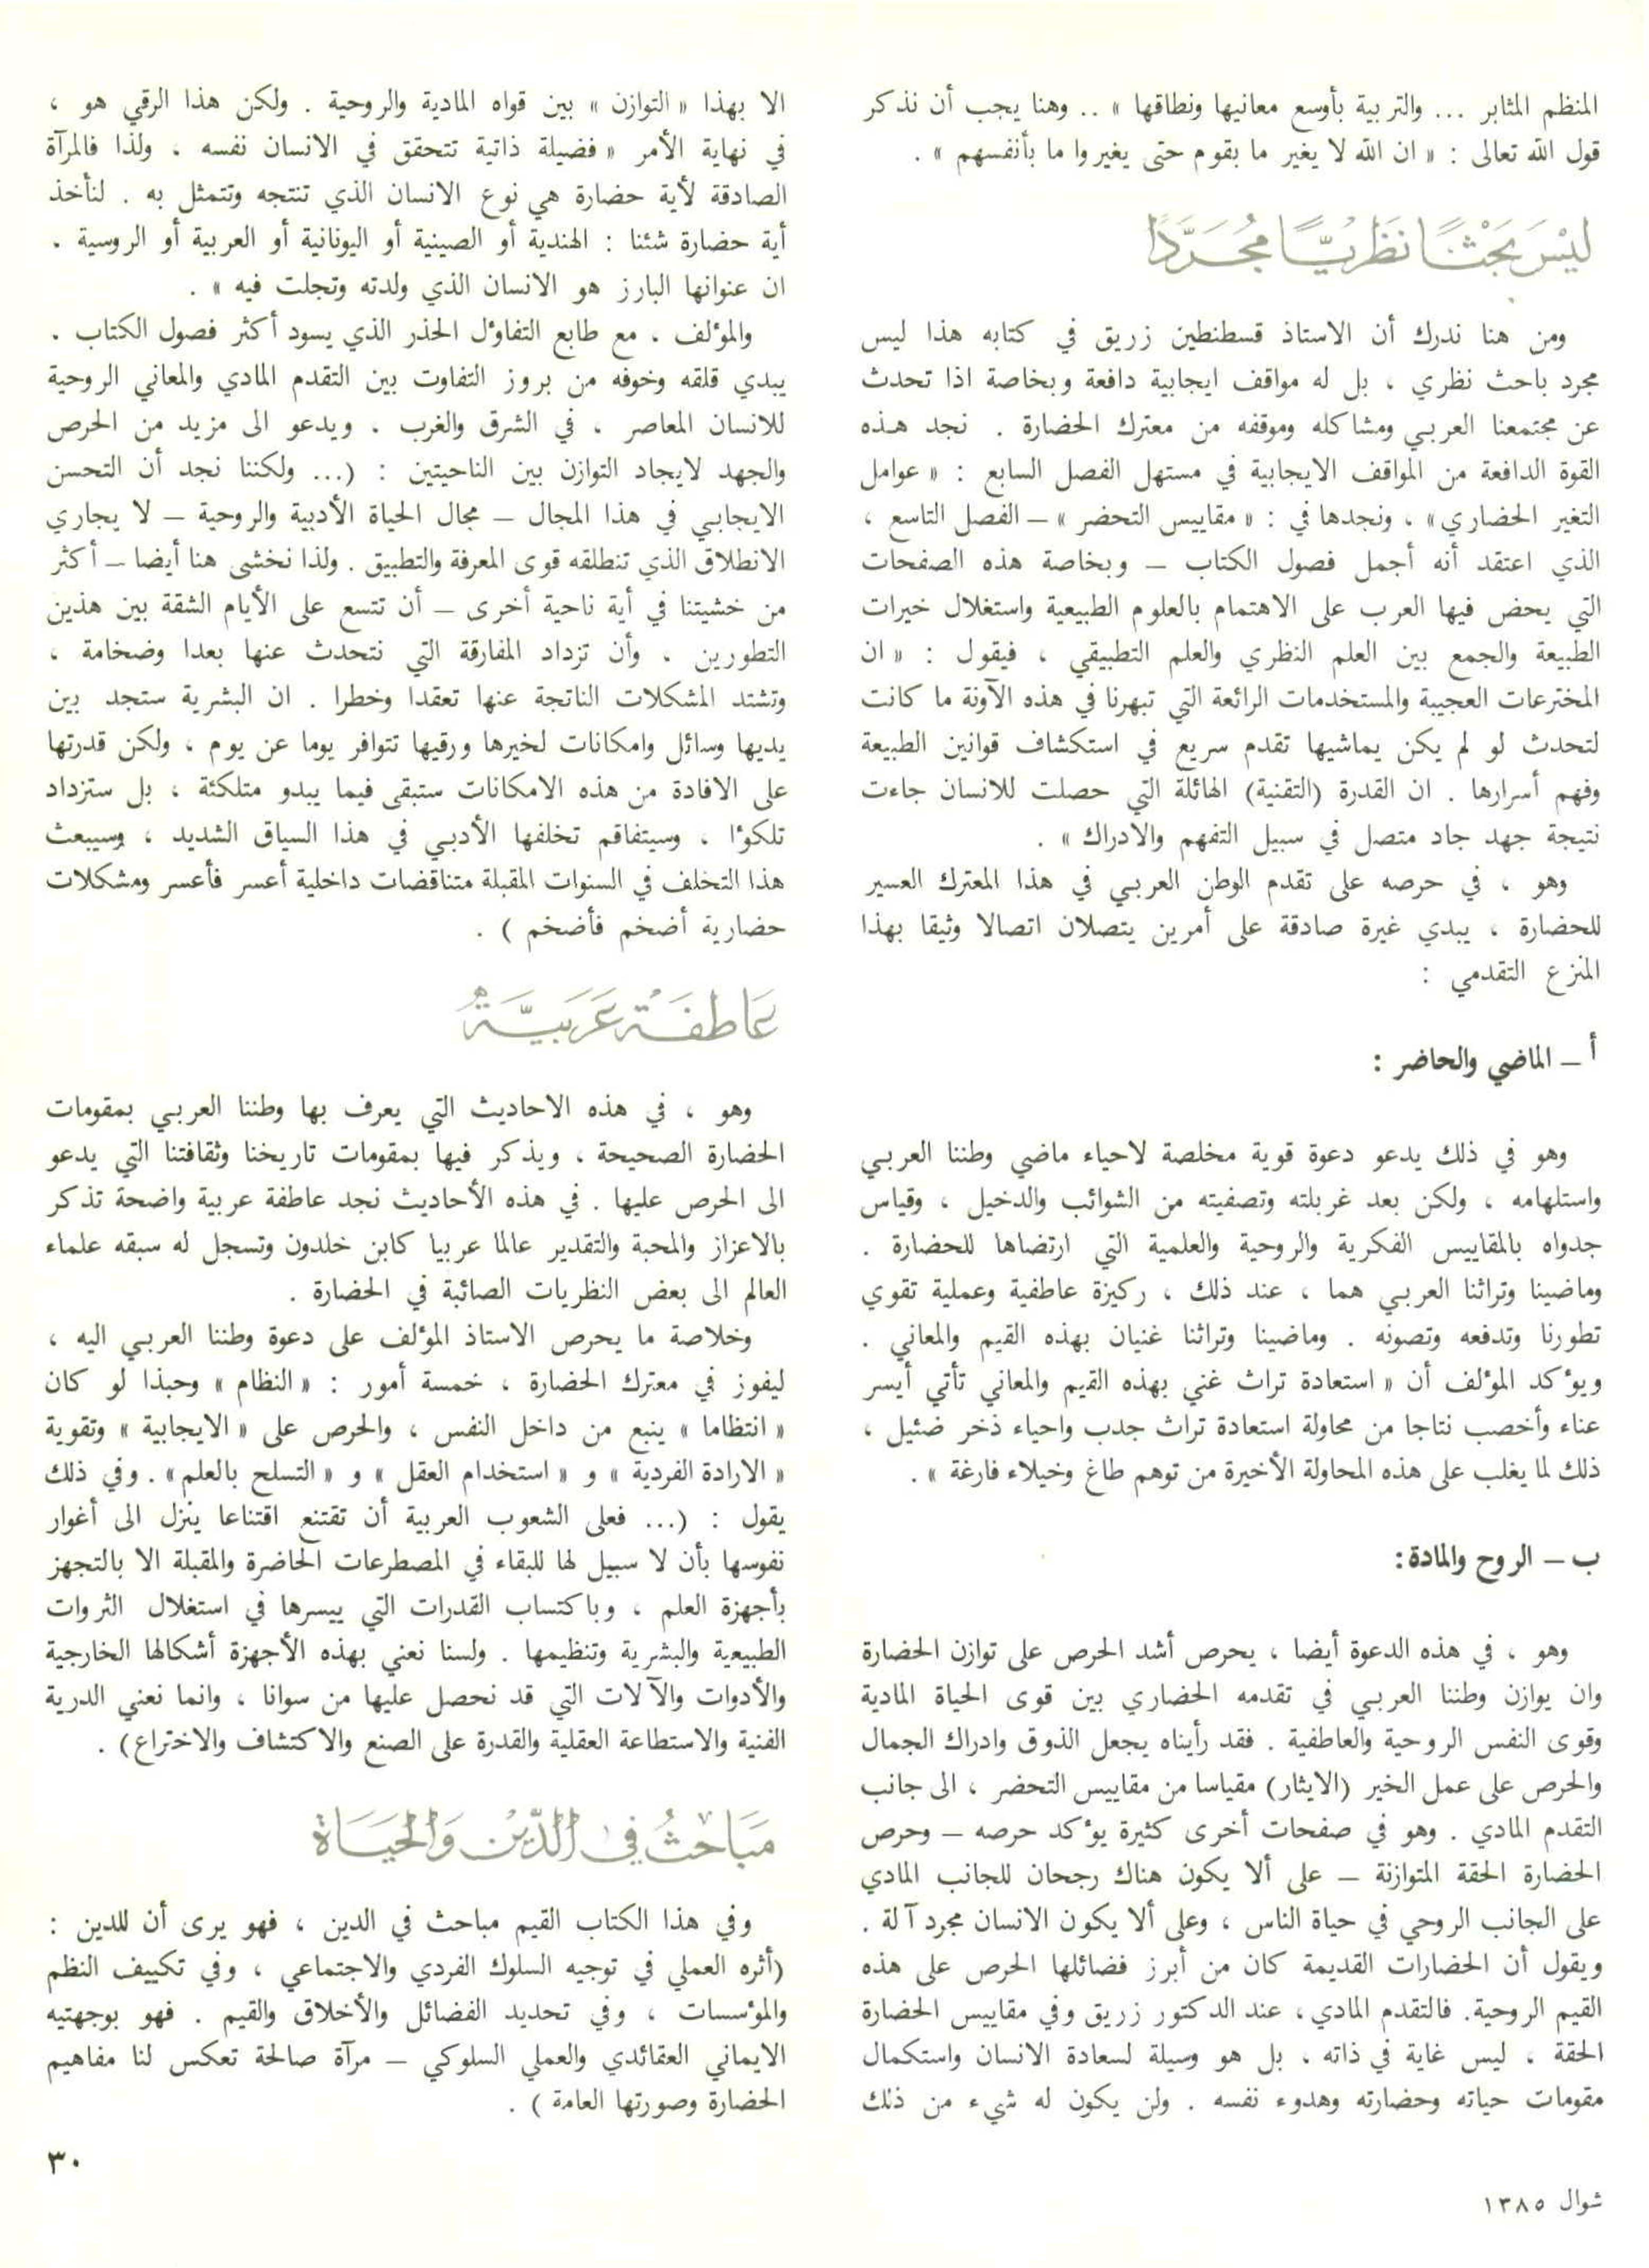 المنظم المثابر ... والتربية بأوسع معانيها ونطاقها » .. وهنا يجب أن نذكر
قول الله تعالى : « ان الله لا يغير ما بقوم حتى يغيروا ما بأنفسهم » .
لَيْسَ بَحْثنًا نَظَريًّا مُجَرَّدًا
ومن هنا ندرك أن الاستاذ قسطنطين زريق في كتابه هذا ليس
مجرد باحث نظري ، بل له مواقف ايجابية دافعة وبخاصة اذا تحدث
عن مجتمعنا العربي ومشاكله وموقفه من معترك الحضارة . نجد هذه
القوة الدافعة من المواقف الايجابية في مستهل الفصل السابع : « عوامل
التغير الحضاري» ، ونجدها في : « مقاييس التحضر » – الفصل التاسع ،
الذي اعتقد أنه أجمل فصول الكتاب – وبخاصة هذه الصفحات
التي يحض فيها العرب على الاهتمام بالعلوم الطبيعية واستغلال خيرات
الطبيعة والجمع بين العلم النظري والعلم التطبيقي ، فيقول : « ان
المخترعات العجيبة والمستخدمات الرائعة التي تبهرنا في هذه الآونة ما كانت
لتحدث لو لم يكن يماشيها تقدم سريع في استكشاف قوانين الطبيعة
وفهم أسرارها . ان القدرة (التقنية) الهائلة التي حصلت للانسان جاءت
نتيجة جهد جاد متصل في سبيل التفهم والادراك » .
وهو ، في حرصه على تقدم الوطن العربي في هذا المعترك العسير
للحضارة ، يبدي غيرة صادقة على أمرين يتصلان اتصالا وثيقا بهذا
المنزع التقدمي :
أ – الماضي والحاضر :
وهو في ذلك يدعو دعوة قوية مخلصة لاحياء ماضي وطننا العربي
واستلهامه ، ولكن بعد غربلته وتصفيته من الشوائب والدخيل ، وقياس
جدواه بالمقاييس الفكرية والروحية والعلمية التي ارتضاها للحضارة .
وماضينا وتراثنا العربي هما ، عند ذلك ، ركيزة عاطفية وعملية تقوي
تطورنا وتدفعه وتصونه . وماضينا وتراثنا غنيان بهذه القيم والمعاني .
ويؤكد المؤلف أن « استعادة تراث غني بهذه القيم والمعاني تأتي أيسر
عناء وأخصب نتاجا من محاولة استعادة تراث جدب واحياء ذخر ضئيل ،
ذلك لما يغلب على هذه المحاولة الأخيرة من توهم طاغ وخيلاء فارغة » .
ب – الروح والمادة:
وهو ، في هذه الدعوة أيضا ، يحرص أشد الحرص على توازن الحضارة
وان يوازن وطننا العربي في تقدمه الحضاري بين قوى الحياة المادية
وقوى النفس الروحية والعاطفية . فقد رأيناه يجعل الذوق وادراك الجمال
والحرص على عمل الخير (الايثار) مقياسا من مقاييس التحضر ، الى جانب
التقدم المادي . وهو في صفحات أخرى كثيرة يؤكد حرصه – وحرص
الحضارة الحقة المتوازنة – على ألا يكون هناك رجحان للجانب المادي
على الجانب الروحي في حياة الناس ، وعلى ألا يكون الانسان مجرد آلة .
ويقول أن الحضارات القديمة كان من أبرز فضائلها الحرص على هذه
القيم الروحية. فالتقدم المادي ، عند الدكتور زريق وفي مقاييس الحضارة
الحقة ، ليس غاية في ذاته ، بل هو وسيلة لسعادة الانسان واستكمال
مقومات حياته وحضارته وهدوء نفسه . ولن يكون له شيء من ذلك
الا بهذا « التوازن » بين قواه المادية والروحية . ولكن هذا الرقي هو ،
في نهاية الأمر « فضيلة ذاتية تتحقق في الانسان نفسه ، ولذا فالمرآة
الصادقة لأية حضارة هي نوع الانسان الذي تنتجه وتتمثل به . لنأخذ
أية حضارة شئنا : الهندية أو الصينية أو اليونانية أو العربية أو الروسية .
ان عنوانها البارز هو الانسان الذي ولدته وتجلت فيه » .
والمؤلف ، مع طابع التفاؤل الحذر الذي يسود أكثر فصول الكتاب .
يبدي قلقه وخوفه من بروز التفاوت بين التقدم المادي والمعاني الروحية
للانسان المعاصر ، في الشرق والغرب . ويدعو الى مزيد من الحرص
والجهد لايجاد التوازن بين الناحيتين : (... ولكننا نجد أن التحسن
الايجابي في هذا المجال – مجال الحياة الأدبية والروحية – لا يجاري
الانطلاق الذي تنطلقه قوى المعرفة والتطبيق . ولذا نخشى هنا أيضا – أكثر
من خشيتنا في أية ناحية أخرى – أن تتسع على الأيام الشقة بين هذين
التطورين ، وأن تزداد المفارقة التي نتحدث عنها بعدا وضخامة ،
وتشتد المشكلات الناتجة عنها تعقدا وخطرا . ان البشرية ستجد بين
يديها وسائل وامكانات لخيرها ورقيها تتوافر يوما عن يوم ، ولكن قدرتها
على الافادة من هذه الامكانات ستبقى فيما يبدو متلكئة ، بل ستزداد
تلكؤا ، وسيتفاقم تخلفها الأدبي في هذا السياق الشديد ، وسيبعث
هذا التخلف في السنوات المقبلة متناقضات داخلية أعسر فأعسر ومشكلات
حضارية أضخم فأضخم ) .
عَاطفَة عَرَبيَّة
وهو ، في هذه الاحاديث التي يعرف بها وطننا العربي بمقومات
الحضارة الصحيحة ، ويذكر فيها بمقومات تاريخنا وثقافتنا التي يدعو
الى الحرص عليها . في هذه الأحاديث نجد عاطفة عربية واضحة تذكر
بالاعزاز والمحبة والتقدير عالما عربيا كابن خلدون وتسجل له سبقه علماء
العالم الى بعض النظريات الصائبة في الحضارة .
وخلاصة ما يحرص الاستاذ المؤلف على دعوة وطننا العربي اليه ،
ليفوز في معترك الحضارة ، خمسة أمور : « النظام » وحبذا لو كان
« انتظاما » ينبع من داخل النفس ، والحرص على « الايجابية » وتقوية
« الارادة الفردية » و « استخدام العقل » و « التسلح بالعلم» . وفي ذلك
يقول : (... فعلى الشعوب العربية أن تقتنع اقتناعا ينزل الى أغوار
نفوسها بأن لا سبيل لها للبقاء في المصطرعات الحاضرة والمقبلة الا بالتجهز
بأجهزة العلم ، وباكتساب القدرات التي ييسرها في استغلال الثروات
الطبيعية والبشرية وتنظيمها . ولسنا نعني بهذه الأجهزة أشكالها الخارجية
والأدوات والآلات التي قد نحصل عليها من سوانا ، وانما نعني الدربة
الفنية والاستطاعة العقلية والقدرة على الصنع والاكتشاف والاختراع) .
مَبَاحثُ في الدّيْن وَالحَيَاة
وفي هذا الكتاب القيم مباحث في الدين ، فهو يرى أن للدين :
(أثره العملي في توجيه السلوك الفردي والاجتماعي ، وفي تكييف النظم
والمؤسسات ، وفي تحديد الفضائل والأخلاق والقيم . فهو بوجهتيه
الايماني العقائدي والعملي السلوكي – مرآة صالحة تعكس لنا مفاهيم
الحضارة وصورتها العامة ) .
٣٠
شوال ١٣٨٥